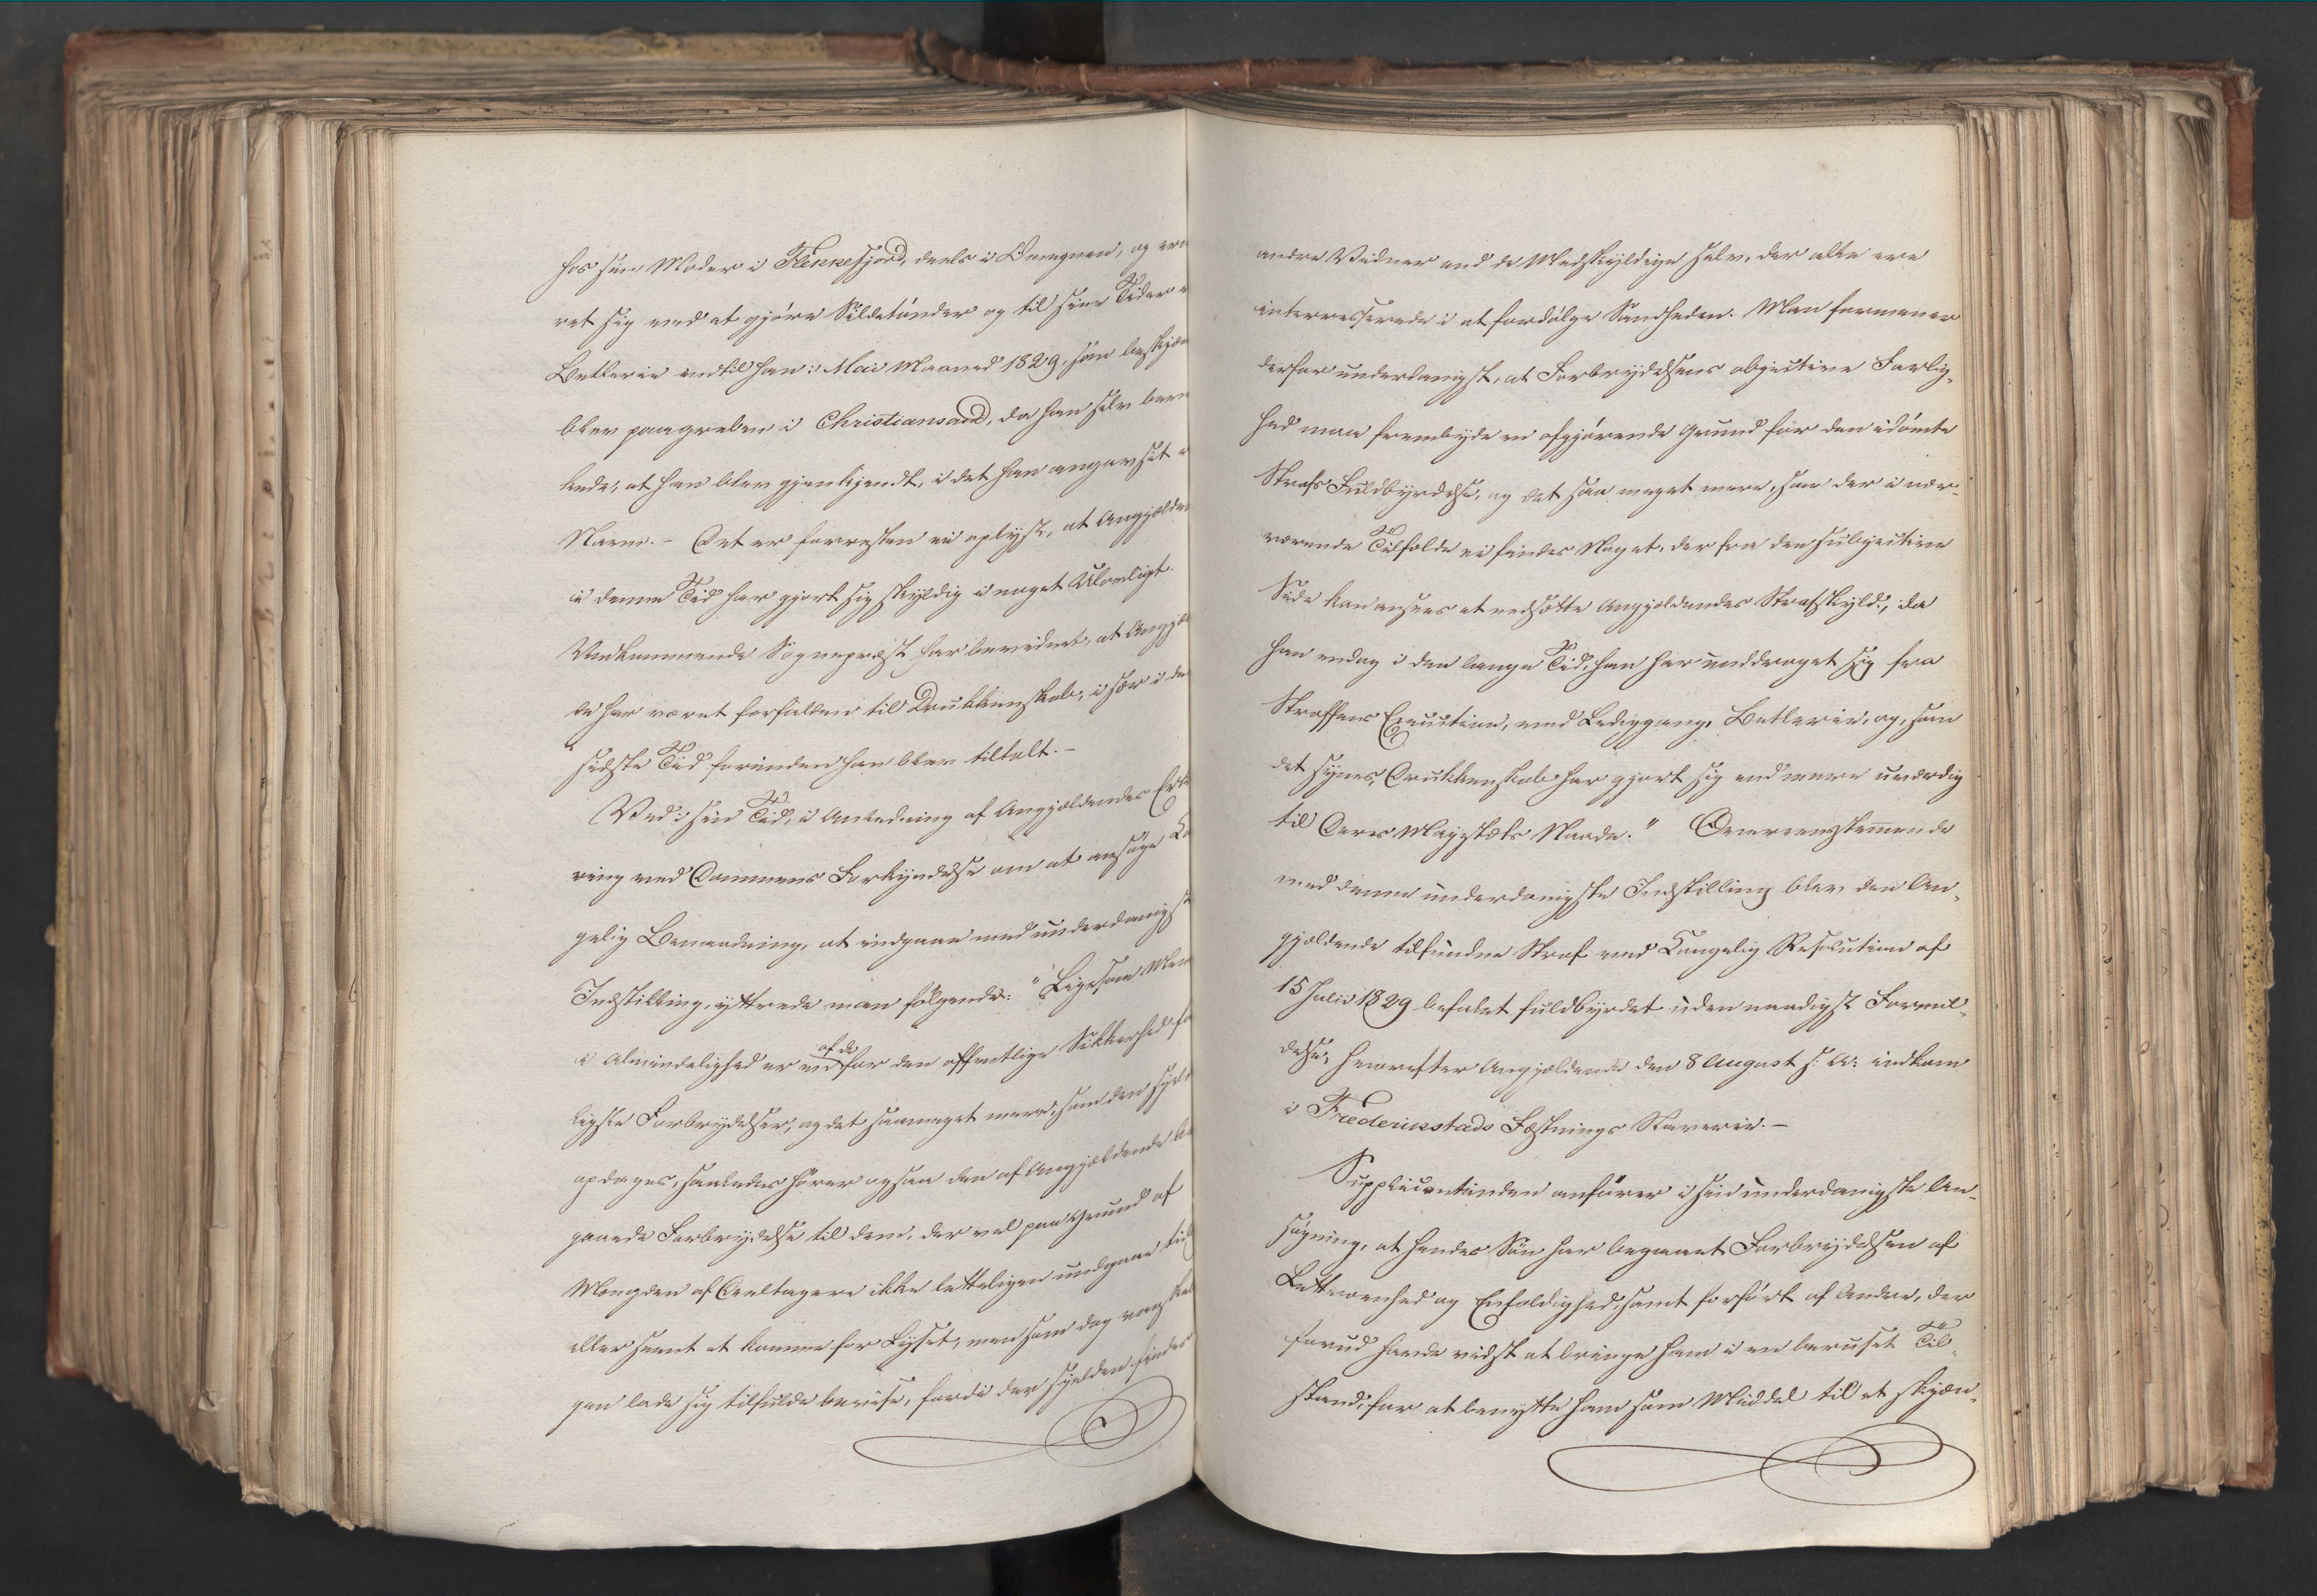 hos sin Moder i Flekkefjord, deels i Omegnen, og ernæ
ret sig med at gjöre Sildetönder og til sine Tider
Betlerie indtil han i Mai Maaned 1829, som beskjæn
blev paagreben i Christiansand, da han selv bevi
kede, at han blev gjenkjendt, i det han angav sit
Navn. - Det er forresten ei oplyst, at Angjælden
i denne Tid har gjort sig skyldig i noget Ulovligt.
Vedkommende Sognepræst har bevidnet, at Angjæ
de har været forfalden til Drukkenskab, i sær i de
sidste Tid forinden han blev tiltalt. -
Ved i sin Tid, i Anledning af Angjældendes Erklæ
ring ved Dommens Forkyndelse om at ansöge Ko
gelig Benaadning, at indgaae med underdanigst
Indstilling, yttrede man fölgende: "Ligesom Men
i Almindelighed er en af de for den offentlige Sikkerhed fa
ligste Forbrydelser, og det saameget mere, som den sjeld
opdages, saaledes hörer ogsaa den af Angjældende be
gaaede Forbrydelse til dem, der vel paa Grund af
Mængden af Deeltagere ikke letteligen undgaae tid
eller seent at komme for Lyset, men som dog vanskel
gen lade sig tilfulde bevise, fordi der sjelden findes
andre Vidner end de Medskyldige selv, der alle ere
interesserede i at fordölge Sandheden. Man formener
derfor underdanigst, at Forbrydelsens objective Farlig-
hed maa frembyde en afgjörende Grund for den idömte
Strafs Fuldbyrdelse, og det saa meget mere, som der i nær-
værende Tilfælde ei findes Noget, der fra den subjective
Side kan ansees at nedsætte Angjældendes Strafskyld, da
han endog i den lange Tid, han har unddraget sig fra
Straffens Execution, ved Lediggang, Betlerie, og, som
det synes, Drukkenskab har gjort sig end mere uværdig
til Deres Majestæts Naade." Overeensstemmende
med denne underdanigste Indstilling blev den An-
gjældende tilfundne Straf ved Kongelig Resolution af
15 Julii 1829 befalet fuldbyrdet uden naadigst Formil-
delse, hvorefter Angjældende den 8 August s: A: indkom
i Frederiksstads Fæstnings Slaverie. -
Supplicantinden anförer i sin underdanigste An-
sögning, at hendes Sön har begaaet Forbrydelsen af
Letteroenhed og Eenfoldighed, samt forfört af Andre, der
forud havde vidst at bringe ham i en beruset Til-
stand, for at benytte ham som Middel til et skjæn-